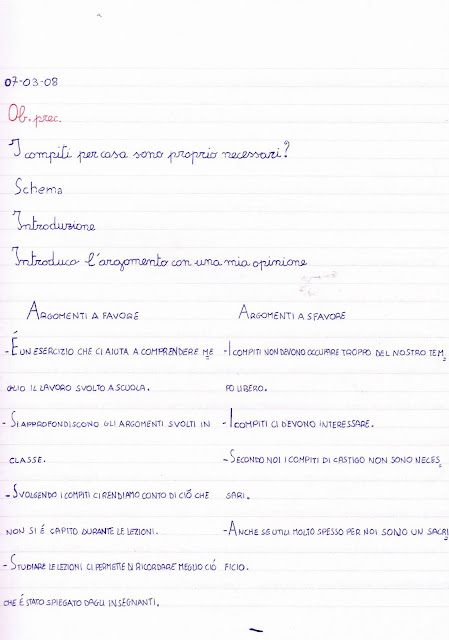 07-03-08
Ob. prec.
I compiti per casa sono proprio necessari?
Schema
Introduzione
Introduco l'argomento con una mia opinione
ARGOMENTI A FAVORE
- É UN ESERCIZIO CHE CI AIUTA A COMPRENDERE ME
GLIO IL LAVORO SVOLTO A SCUOLA.
- SI APPROFONDISCONO GLI ARGOMENTI SVOLTI IN
CLASSE.
- SVOLGENDO I COMPITI CI RENDIAMO CONTO DI CIÓ CHE
NON SI É CAPITO DURANTE LE LEZIONI.
- STUDIARE LE LEZIONI CI PERMETTE DI RICORDARE MEGLIO CIÓ
CHE É STATO SPIEGATO DAGLI INSEGNANTI.
ARGOMENTI A SFAVORE
- I COMPITI NON DEVONO OCCUPARE TROPPO DEL NOSTRO TEM
PO LIBERO.
- I COMPITI CI DEVONO INTERESSARE.
- SECONDO NOI I COMPITI DI CASTIGO NON SONO NECES
SARI.
- ANCHE SE UTILI MOLTO SPESSO PER NOI SONO UN SACRI
FICIO.